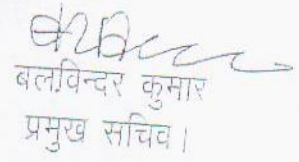 बलविन्दर कुमार
प्रमुख सचिव।